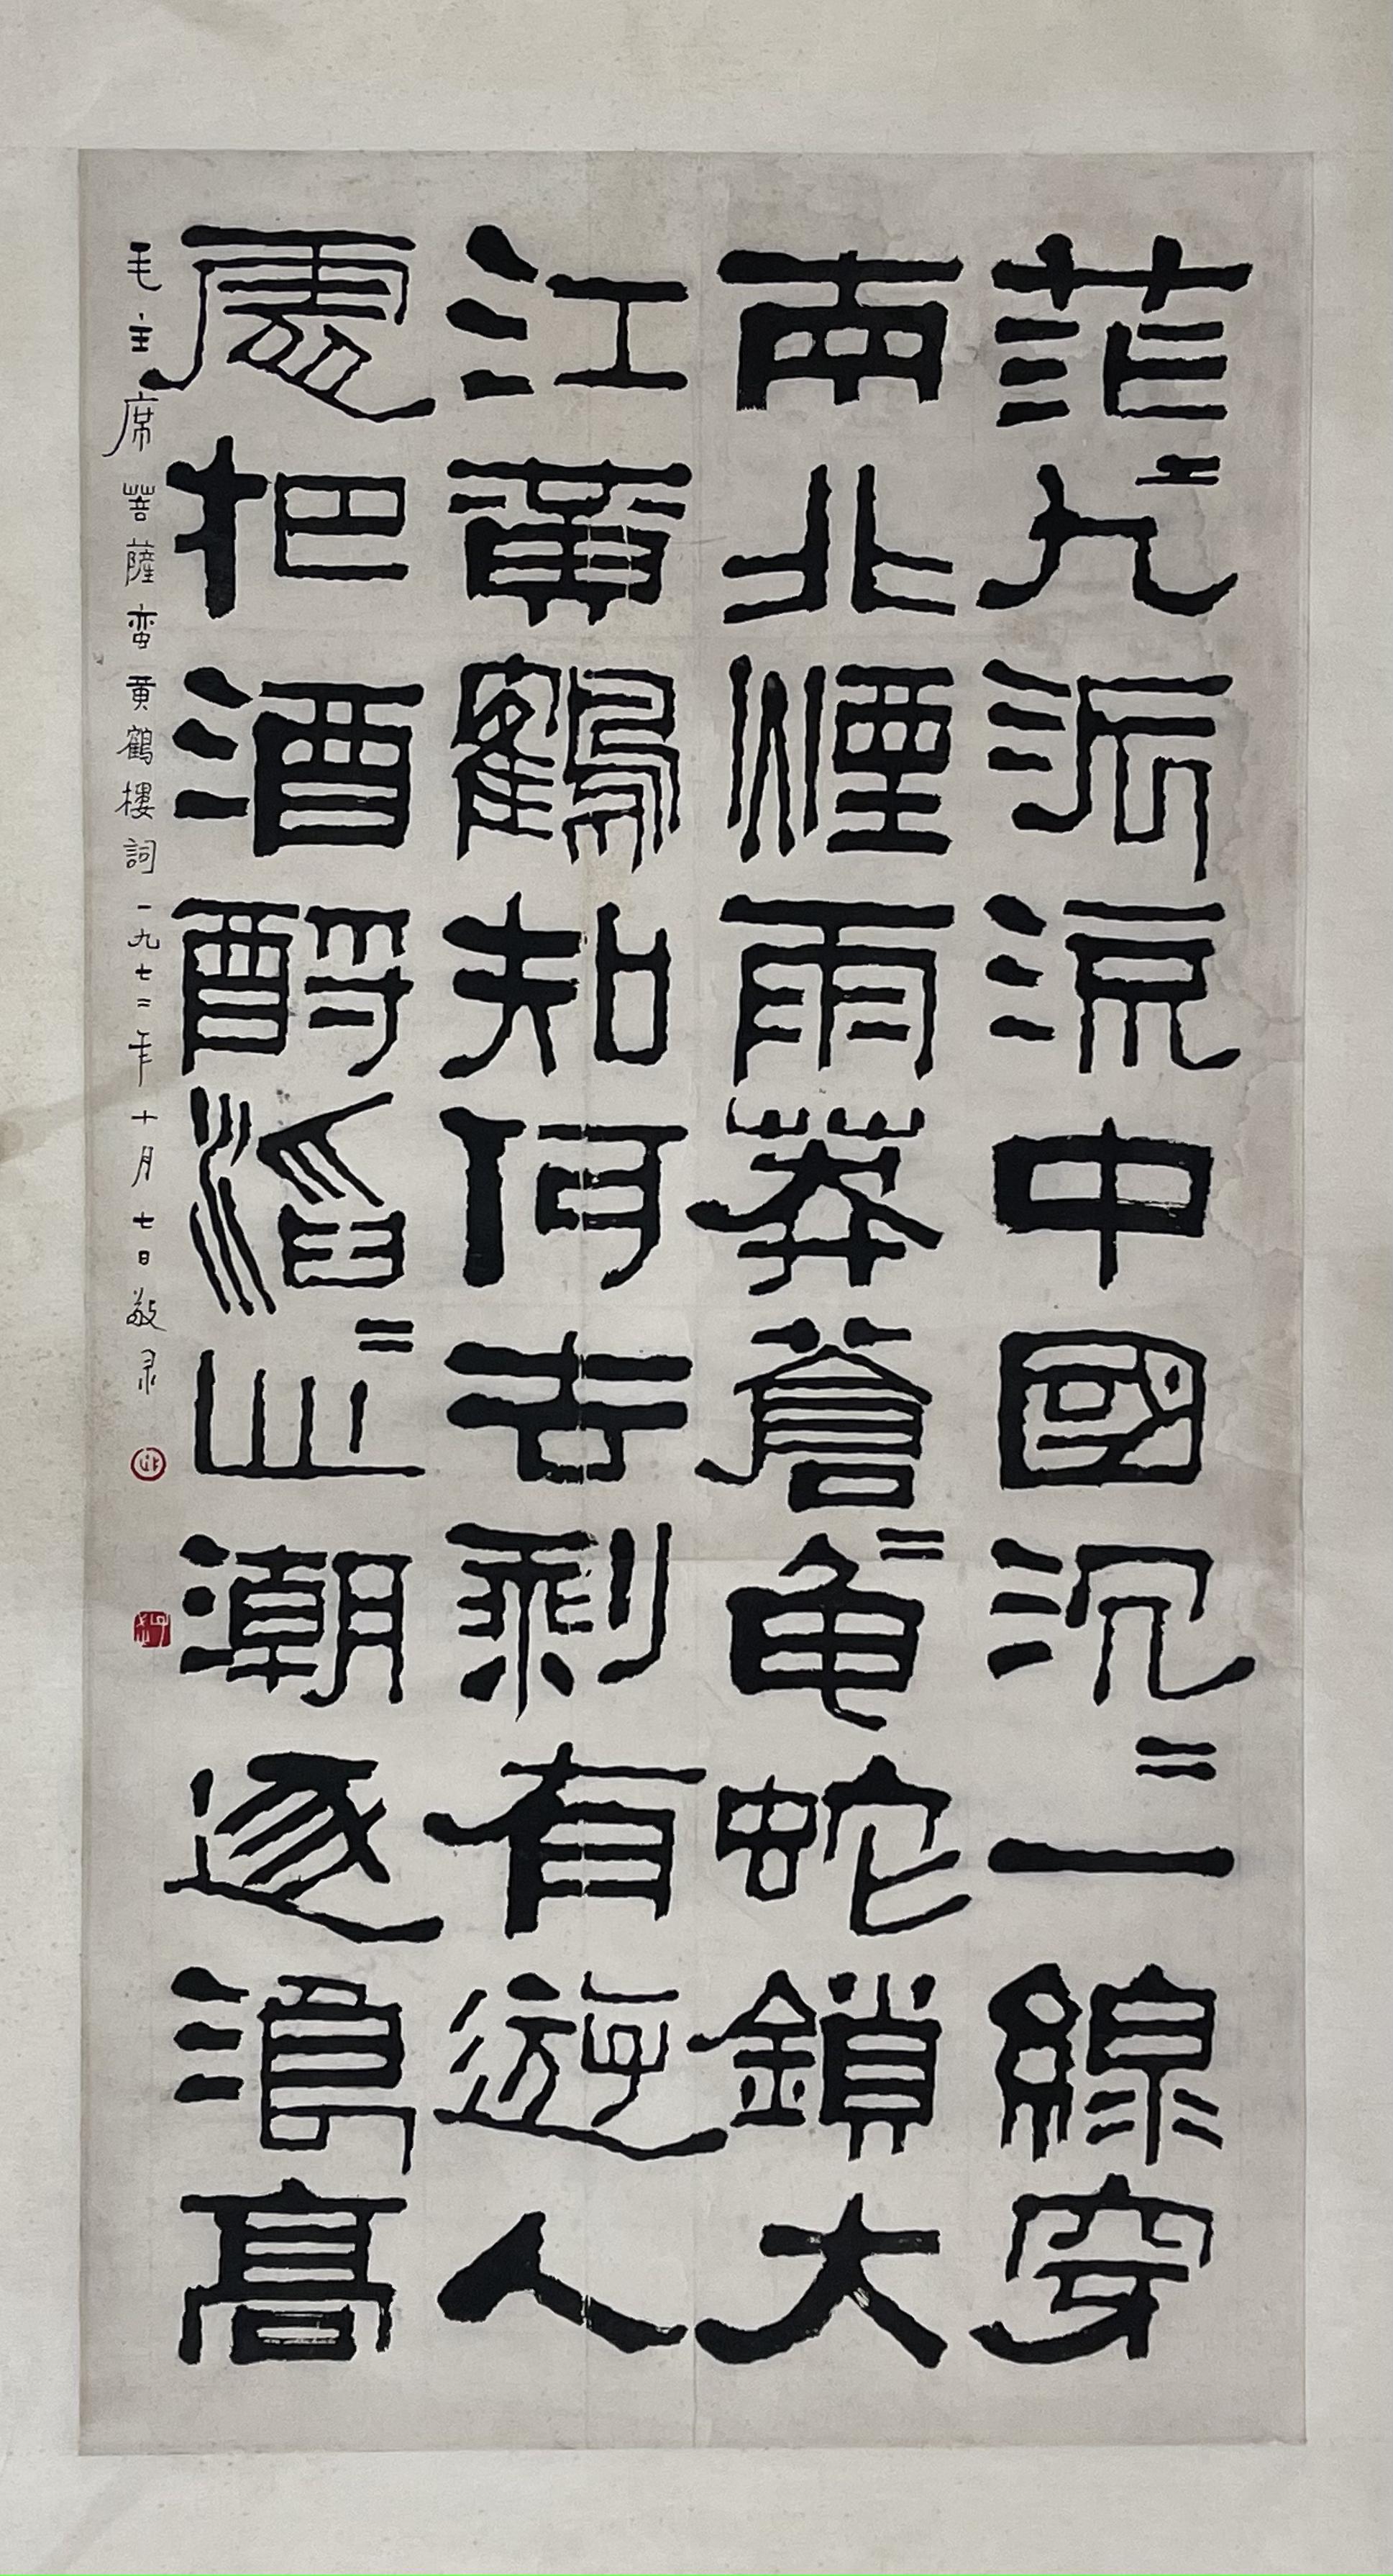 茫〻九派流中國沉〻一線穿
南北煙雨莽蒼〻龟蛇鎖大
江黄鶴知何去剩有遊人
處把酒酹滔〻心潮逐浪高
毛主席菩薩蛮黄鶴樓詞一九七二年十月七日敬录